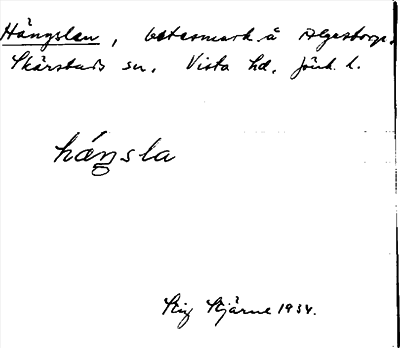 Hängslan, betesmark å Algestorp.
Skärstads sn. Vista hd. Jönk. l.
hángsla
Stig Stjärne 1934.